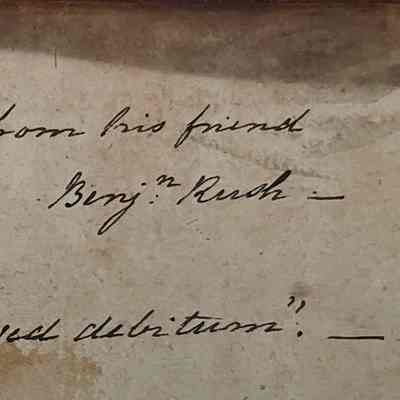 from his friend
Benj:ⁿ Rush —
sed debitum". —